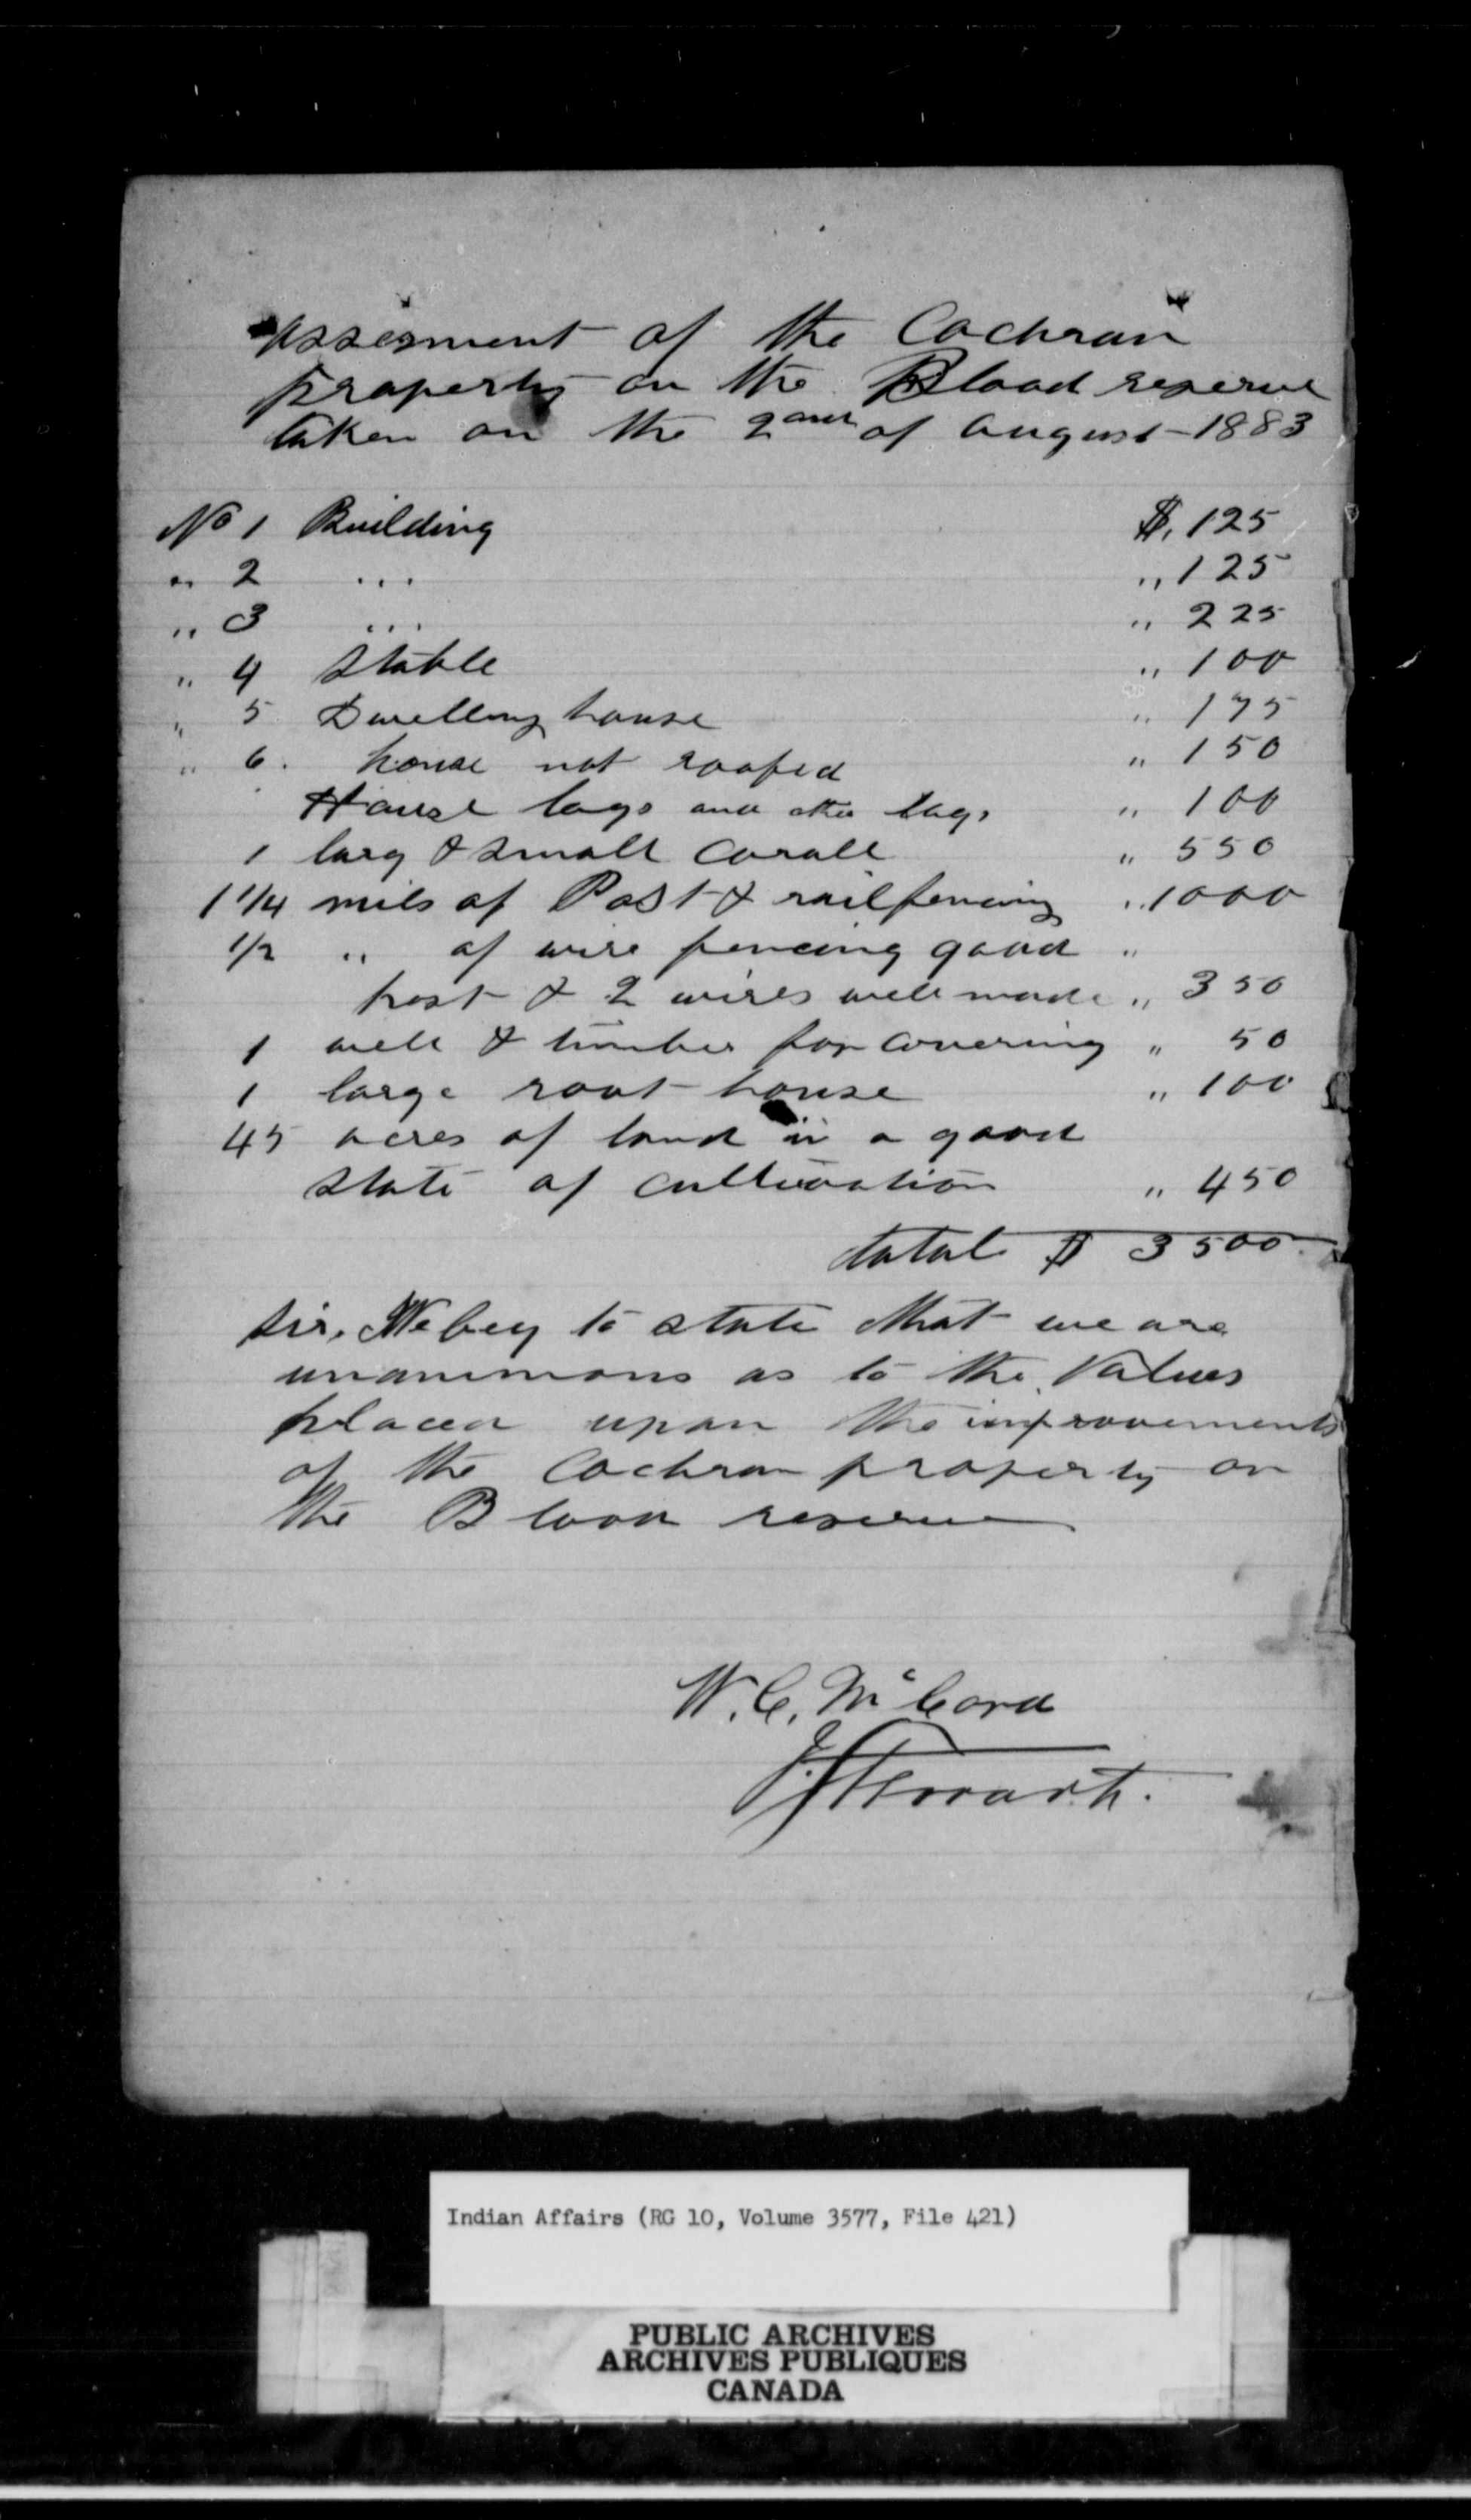 Assesment of the Cochran
property on the Blood reserve
taken on the 2ond of August-1883
No 1 Building $. 125
" 2 ... " 125
" 3 ... " 225
" 4 Stable " 100
" 5 Dwelling house " 175
" 6. house not roofed " 150
House logs and other logs " 100
1 larg & small Corall " 550
1 1/4 mils of Post & rail fencing " 1000
1/2 " of wire fencing good "
post & 2 wires well made " 350
1 well & timber for covering " 50
1 large root-house " 100
45 acres of land in a good
state of cultivation " 450
total $ 3500
Sir, We beg to state that we are
unanimous as to the Values
placed upon the improvements
of the Cochran property on
the Blood reserve
W. C. McCord
J. Stewart.
Indian Affairs (RG 10, Volume 3577, File 421)
PUBLIC ARCHIVES
ARCHIVES PUBLIQUES
CANADA